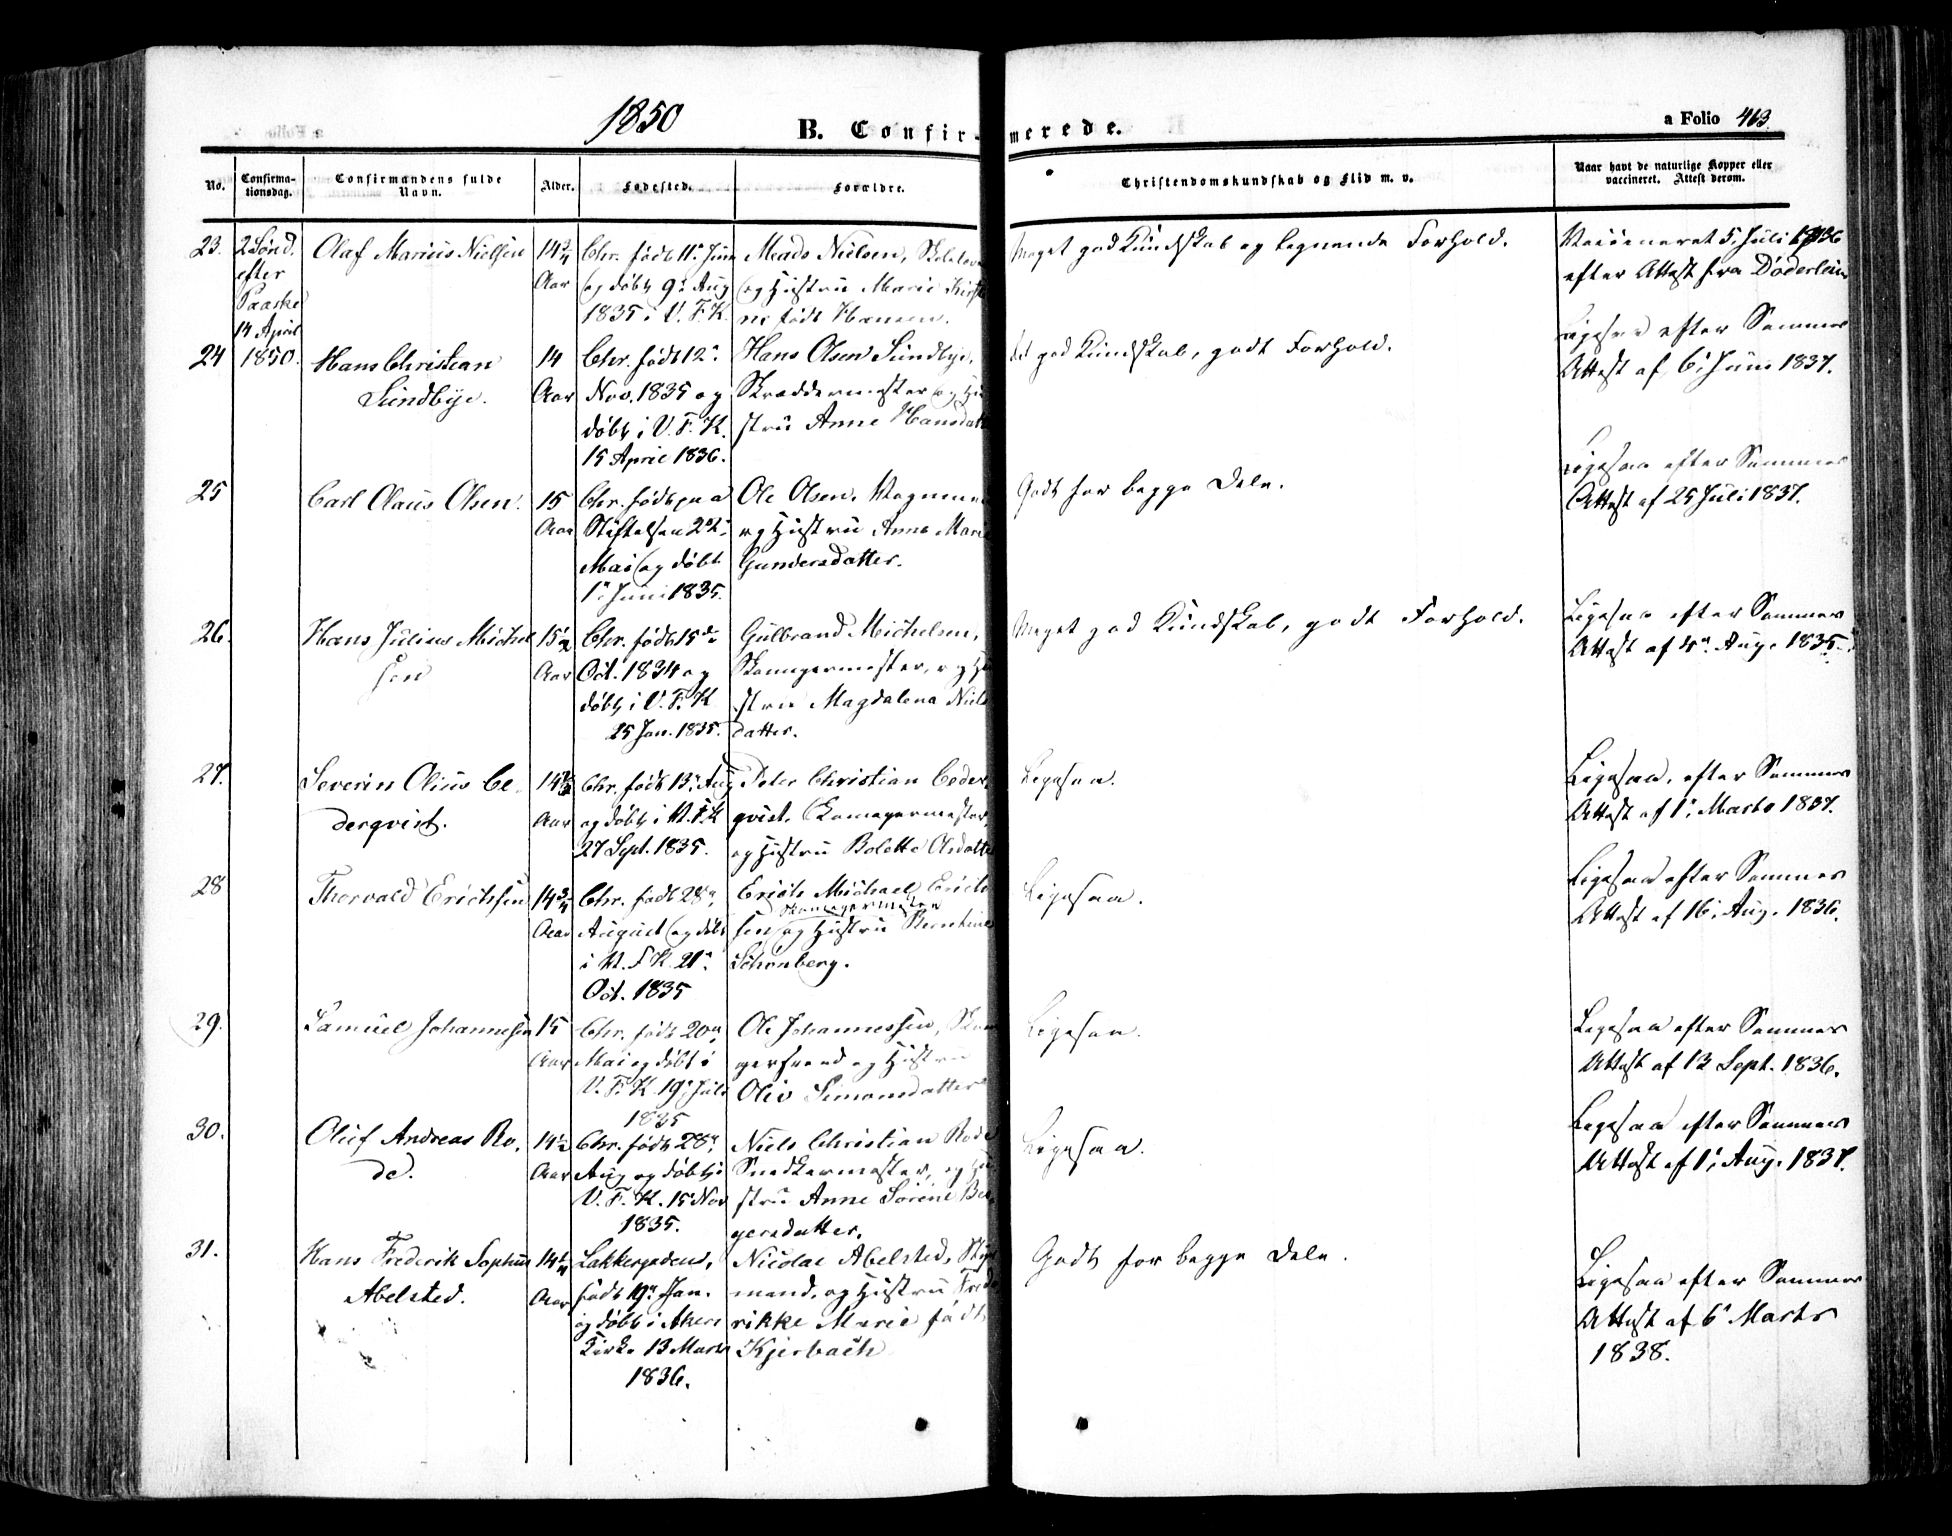 1850
B. Confirmerede.
a Folio 463.
No.
Confirmationsdag.
Confirmandens fulde Navn.
Alder.
Fødested.
Forældre.
Christendomskundskab og Flid m. v.
Naar havt de naturlige Kopper eller vaccineret. Attest derom.
23. 2 Sønd. Olaf Marius Nielsen 14 3/4 Chr. født 11. Juni Mads Nielsen, Meget god Kundskab og Forhold. Vaccineret 5 Juli 1836
efter Aar og døbt 9. Aug og Hustru Marie efter Attest fra Døderlein
Paaske 1835 i V. F. K. født Hansen.
14 April
24 1850. Hans Christian 14 Chr. født 12. Hans Olsen Sundbye, god Kundskab, godt Forhold. Ligesaa efter Sammes
Sundbye. Aar Nov. 1835 og Skræddermester og Hu Attest af 6. Juni 1837.
døbt i V. F. K. stru Anne Hansdatt
15 April 1836.
25 Carl Claus Olsen. 15 Chr. født paa Ole Olsen, og Godt for begge Dele. Ligesaa efter Sammes
Aar Stiftelsen og Hustru Anne Marie Attest af 25 Juli 1837.
Mai og døbt Gundersdatter.
1. Juni 1835.
26. Hans Julius Michel 15 1/2 Chr. født 15de Gulbrand Michelsen, Meget god Kundskab, godt Forhold. Ligesaa efter Sammes
sen Aar Oct. 1834 og Skomagermester, og Hu Attest af 4. Aug. 1835.
døbt i V. F. K. stru Magdalena Niels
25 Jan. 1835. datter.
27. Severin Olius Ce Chr. født 13. Aug Peter Christian Ceder Ligesaa. Ligesaa, efter Sammes
derqvist. Aar og døbt i V. F. K qvist, Skomagermester, Attest af 1. Marts 1837.
27 Sept. 1835. og Hustru Bolette
28 Thorvald Erichsen 14 3/4 Chr. født 28. Erich Michael Erich Ligesaa. Ligesaa efter Sammes
Skomagermester
Aar August og døbt sen og Hustru Attest af 16. Aug. 1836.
i V. F. K. 21. Schønberg.
Oct. 1835
29. Samuel Johannesen 15 Chr. født 20. Ole Johannessen, Sko Ligesaa. Ligesaa efter Sammes
Aar Mai og døbt i gersvend og Hustru Attest af 12 Sept. 1836.
V. F. K. 19. Juli Oliv Simonsdatter
1835
30. Oluf Andreas Ro 14 1/2 Chr. født 28. Niels Christian Rode Ligesaa. Ligesaa efter Sammes
de. Aar Aug og døbt i Snedkermester, og Hu Attest af 1. Aug. 1837.
V. F. K. 15 Nov stru Anne Sørine
1835. gersdatter.
31. Hans Frederik Sophus 14 1/4 Lakkegaden, Nicolai Abelsted, Styr Godt for begge Dele. Ligesaa efter Sammes
Abelsted. Aar født 19. Jan. mand, og Hustru Frede Attest af 6 Marts
og døbt i Akers rikke Marie født 1838.
Kirke 13 Marts Kjerbach
1836.